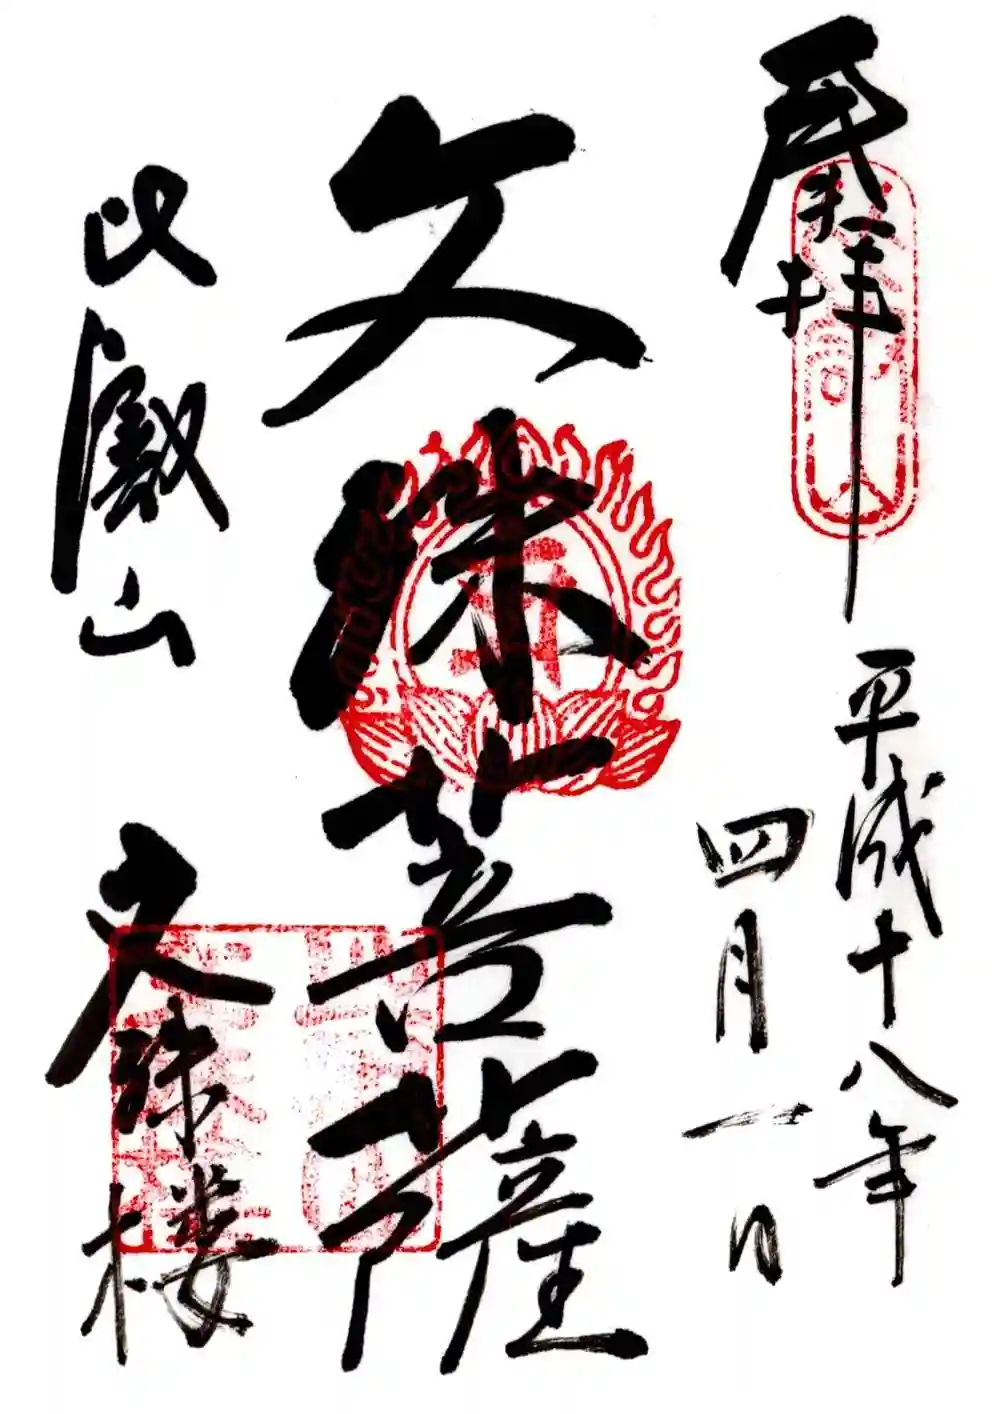 拝
平成十八年
四月一日
文殊菩薩
比叡山
文殊楼